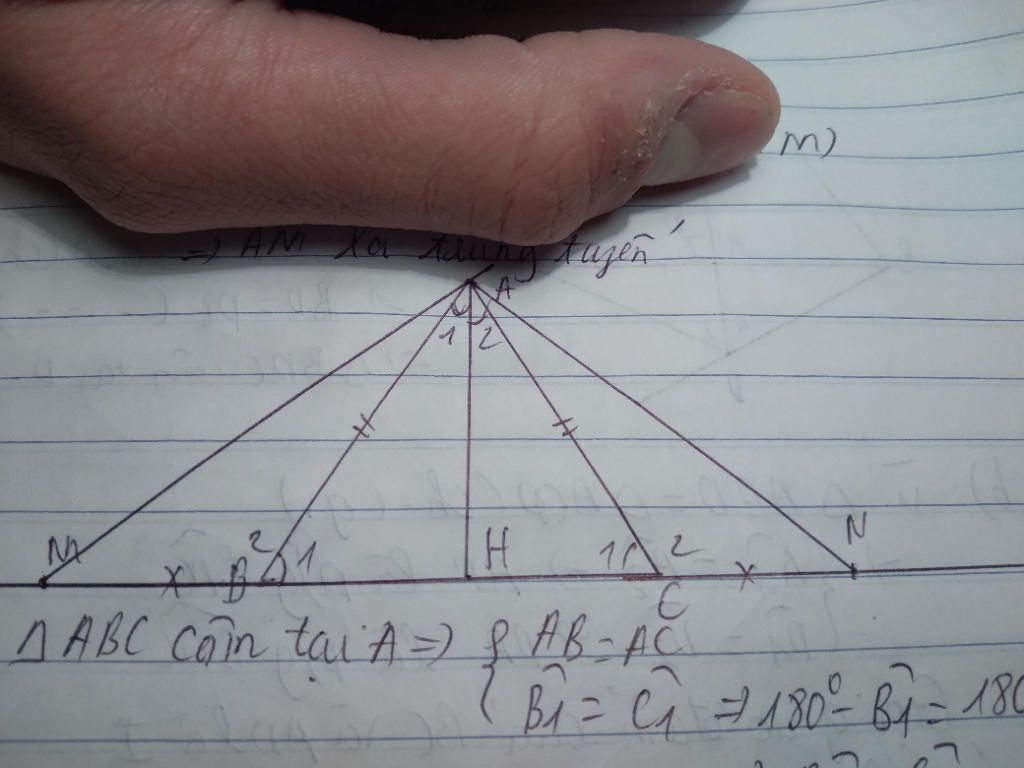 M)
=) AM là trung tuyến
A
1 2
M 2 B 1 H 1 C 2 N
Δ ABC cân tại A => { AB = AC
B̂1 = Ĉ1 => 180° - B̂1 = 180